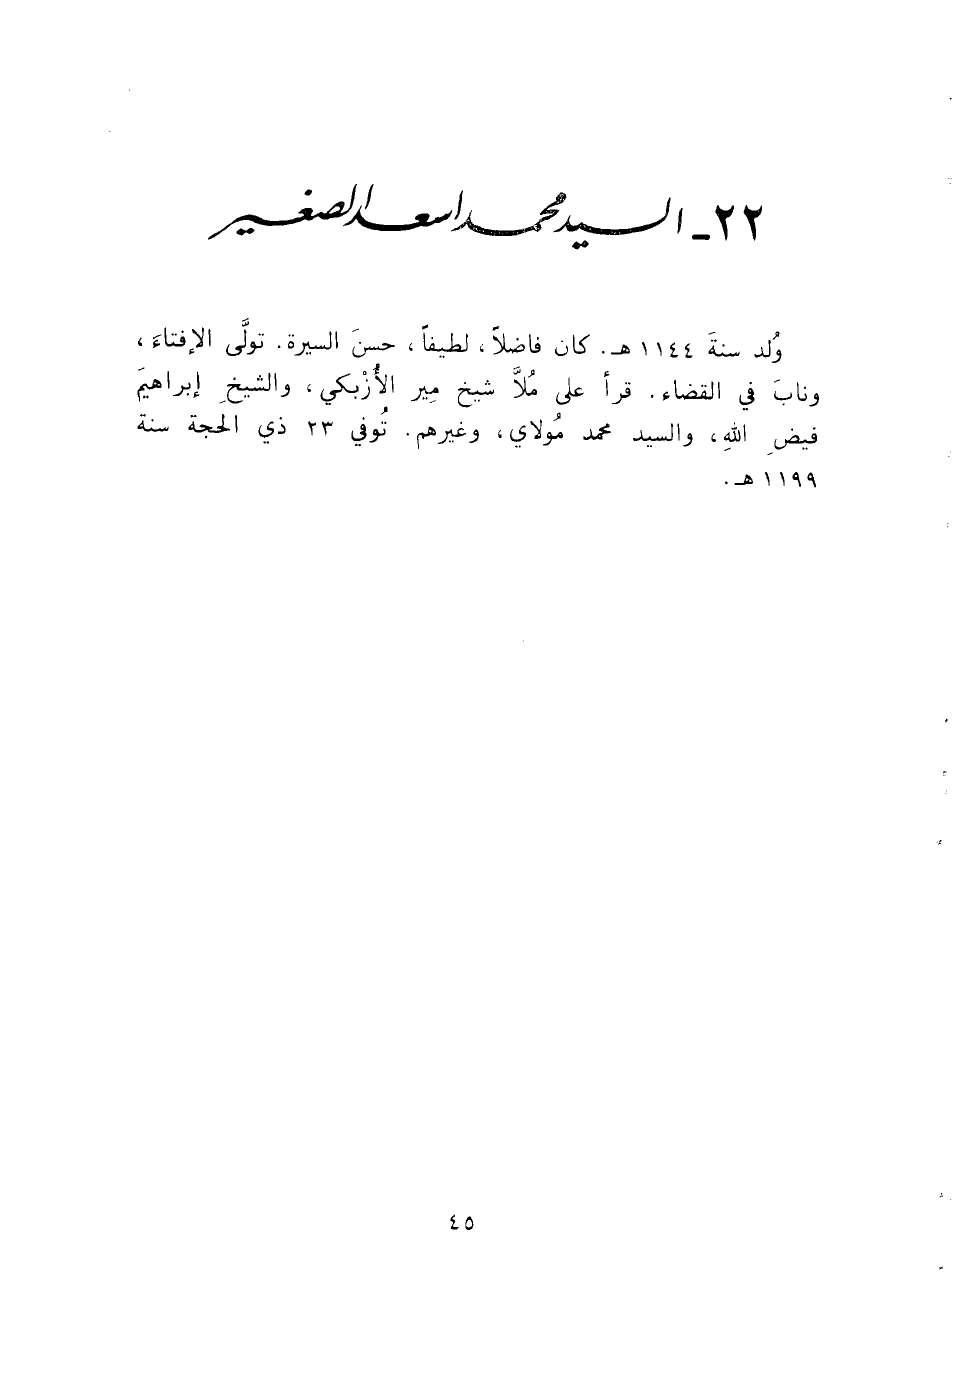 ٢٢ـ السيد محمد اسعد الصغير
وُلد سنةَ ١١٤٤ هـ. كان فاضلاً، لطيفاً، حسنَ السيرة. تولَّى الإفتاءَ،
ونابَ في القضاء. قرأ على مُلاَّ شيخ مِير الأُزْبكي، والشيخِ إبراهيمَ
فيضِ اللهِ، والسيد محمد مُولاي، وغيرهم. تُوفي ٢٣ ذي الحجة سنة
١١٩٩ هـ.
٤٥